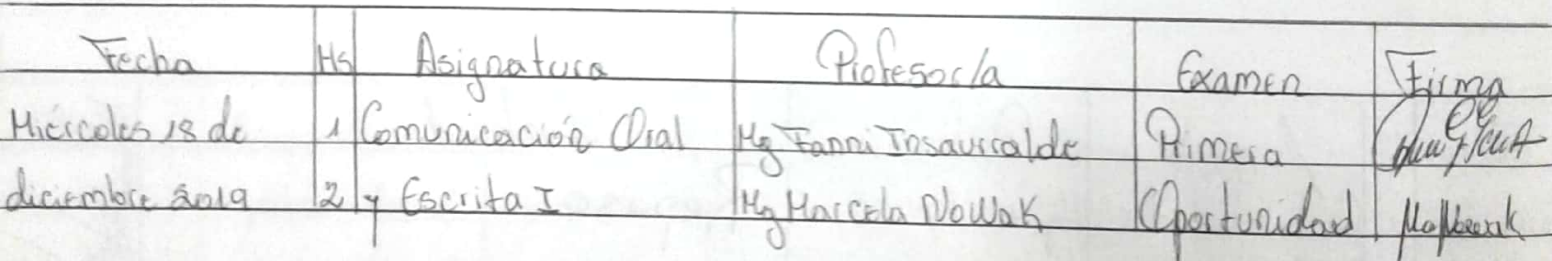 Fecha Hs Asignatura Profesor/a Examen Firma
Miércoles 18 de 1 Comunicación Oral Mg Fanni Insaurralde Primera
diciembre 2019 2 y Escrita I Mg Marcela Nowak Oportunidad